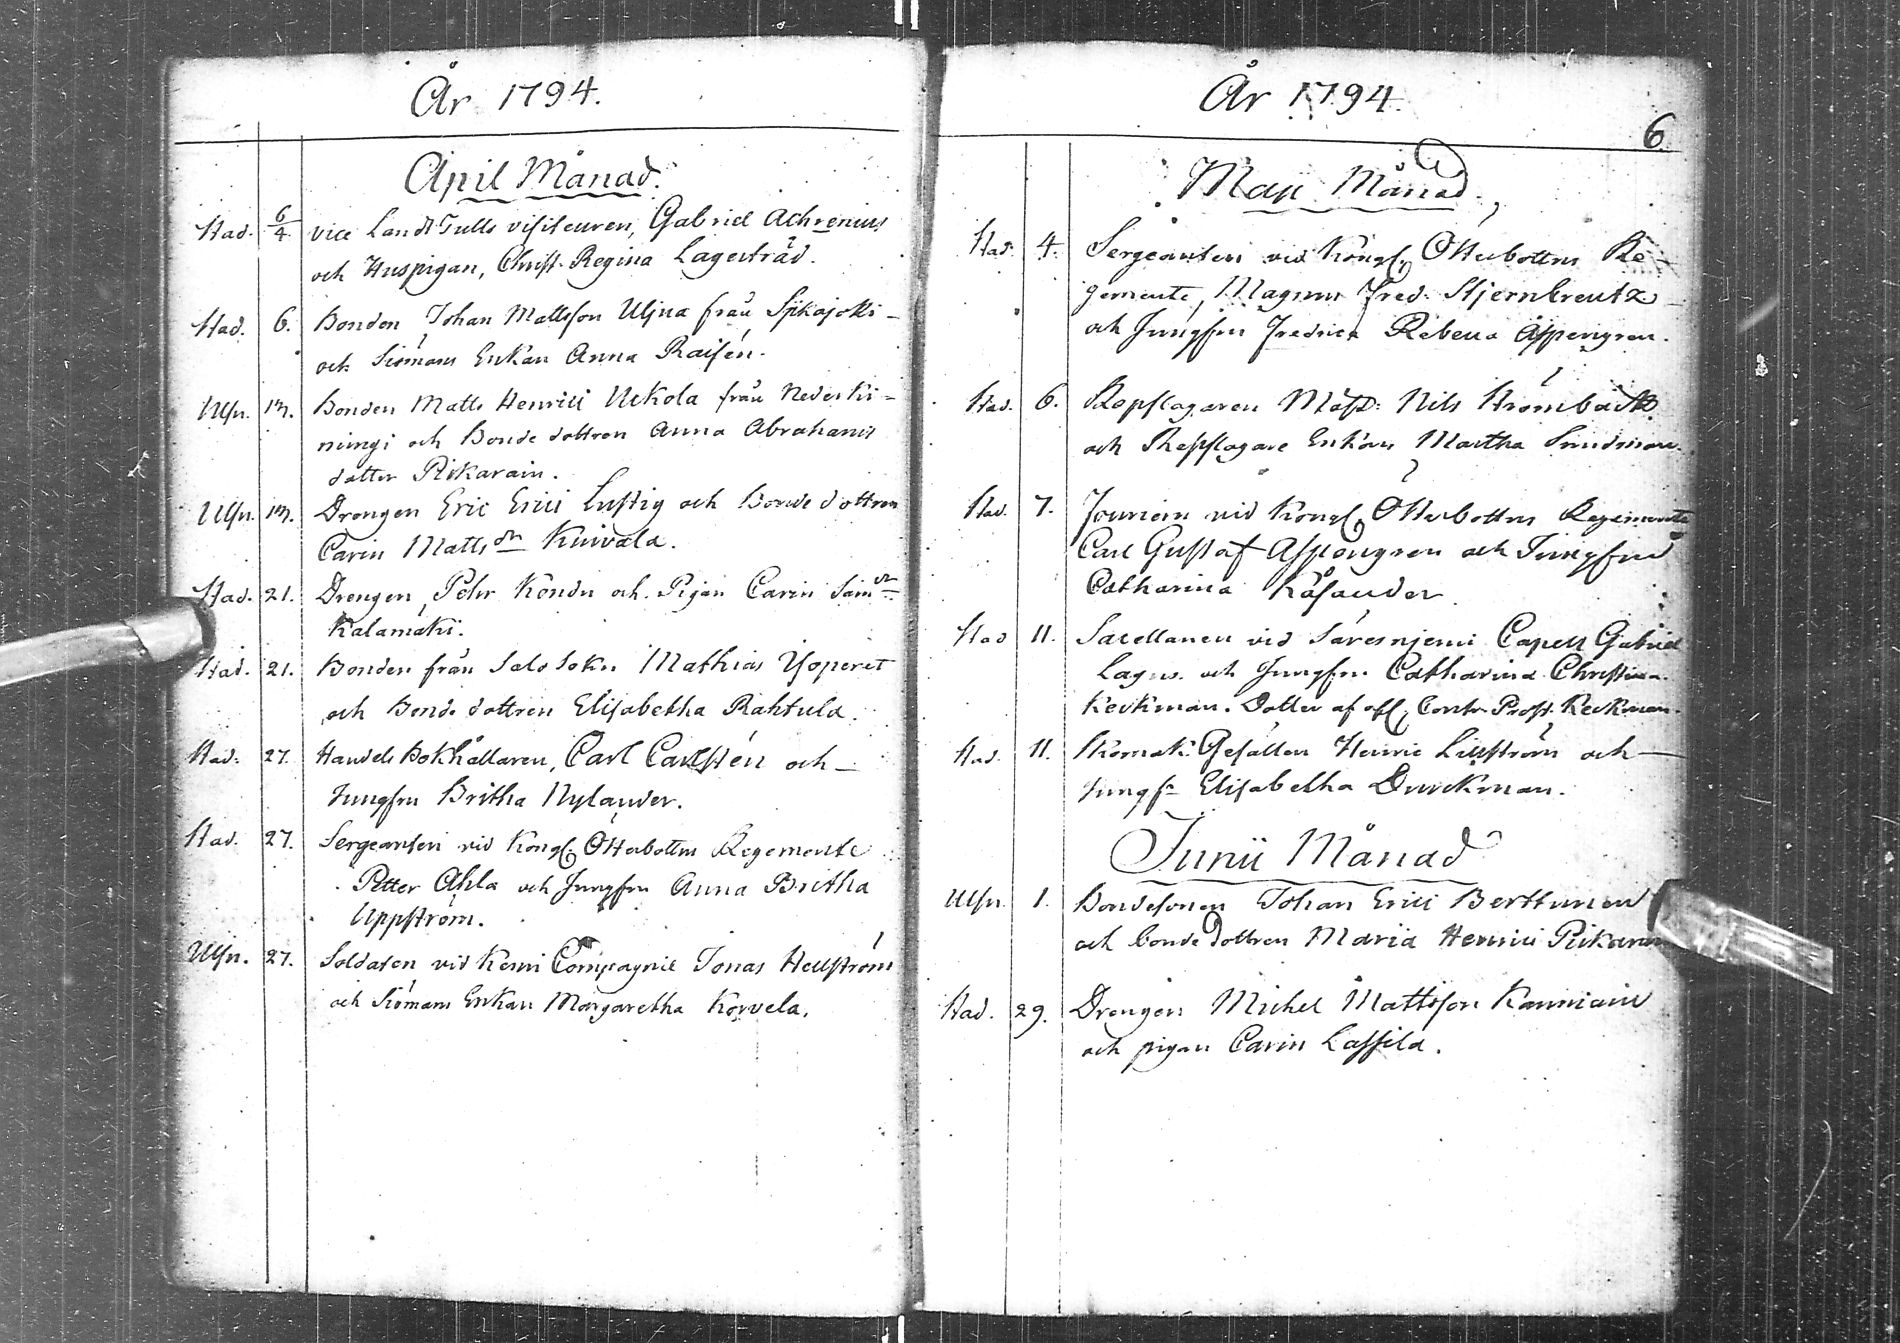 År 1794.
April Månad.
Stad. 6/4 vice LandtTulls visiteuren, Gabriel Achrenius
och Huspigan, Christ. Regina Lagerstråd.
Stad. 6. Bonden Johan Mattsson Uljua från Sikajocki -
och Siömans Enkan Anna Raisén.
Ulsn. 13. Bonden Matts Henrici Uckola från Nederki-
mingi och Bonde dottren Anna Abrahams
dotter Pikarain.
Ulsn. 13. Drengen Eric Erici Lustig och Bonde dottren
Carin Matts dr Knivala.
Stad. 21. Drengen Pehr Kondn och Pigan Carin Sam dr
Kalamaki.
Stad. 21. Bonden från Salo Sokn Mathias Yoperet
och Bonde dottren Elisabetha Rahtula.
Stad. 27. Handels Bokhållaren, Carl Carlstén och -
Jungfru Britha Nylander.
Stad. 27. Sergeanten vid Kongl. Österbottns Regemente
Petter Ahla och Jungfru Anna Britha
Uppström.
Ulsn. 27. Soldaten vid Kemi Compagnie Jonas Hellström
och Siömans Enkan Margaretha Korvela.
År 1794.
6.
Maji Månad.
Stad. 4. Sergeanten vid Kongl. Österbottns Re-
gemente, Magnus Fred. Stjernkreutz -
och Jungfru Fredrica Rebecca Aspengren.
Stad. 6. Repslagaren Mäst. Nils Strömbäck
och Repslagare Enkan Martha Sundman.
Stad. 7. Fouriern vid Kongl. Österbottns Regemente
Carl Gustaf Aspengren och Jungfru
Catharina Kåsander.
Stad 11. Sacellanen vid Säresnjemi Capell Gabriel
Lagus och Jungfru Catharina Christina
Keckman. Dotter af afl. Contr. Prost. Keckman.
Stad. 11. Skomak. Gesällen Henric Lillström och -
Jungfr Elisabetha Durckman.
Junii Månad
Ulsn. 1. Bondesonen Johan Erici Berttunen
och bonde dottren Maria Henrici Pikarain
Stad. 29. Drengen Michel Mattsson Kanniain
och pigan Carin Lassila.